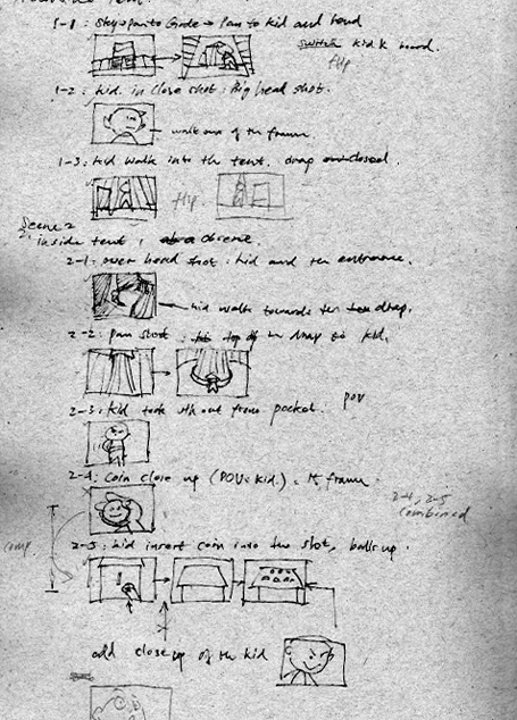 1-1: Sky → pan to Grade → Pan to kid and board
switch kid & board.
flip
1-2: kid. in close shot: Big head shot.
walk out of the frame.
1-3: kid walk into the tent. drap closed.
flip.
Scene 2
2. inside tent,
2-1: over head shot: kid and the entrance.
kid walk towards the drap.
2-2: pan shot: top of the drap to kid.
2-3: kid took sth out from pocket.
POV
2-4: coin close up (POV: kid.) frame.
2-4, 2-5
combined
comp.
2-5: kid insert coin into the slot, balls up.
add close up of the kid